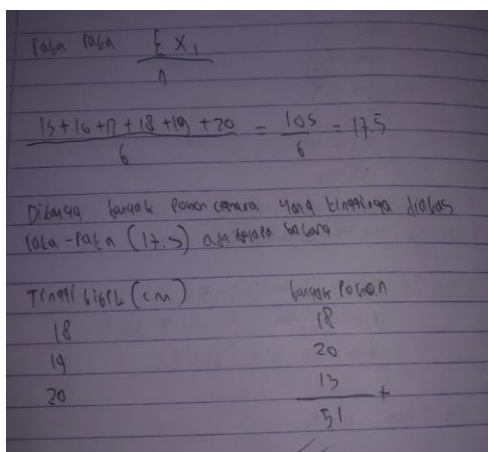 rata rata Σ x₁
n
15+16+17+18+19+20 = 105 = 17.5
6 6
Ditanya banyak pohon cemara yang tingginya diatas
rata-rata (17.5) ada berapa batang
Tinggi bibit (cm) banyak Pohon
18 18
19 20
20 13
51 +